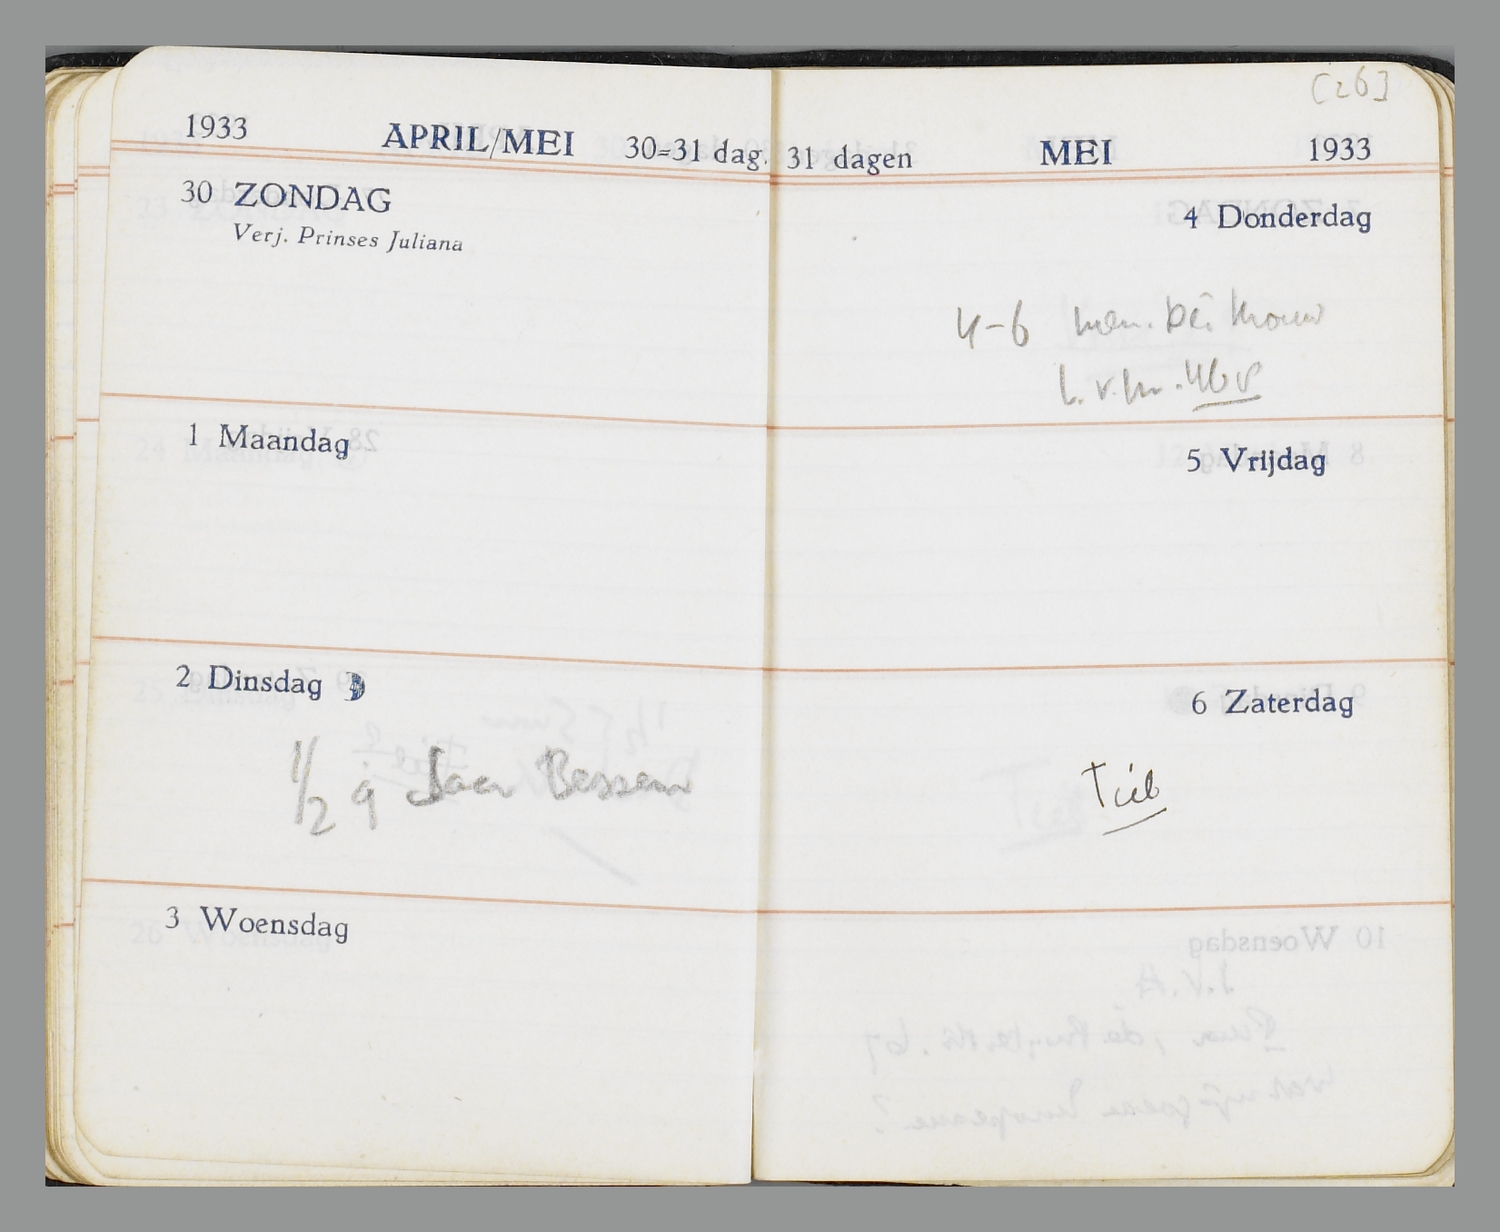 1933 APRIL/MEI 30=31 dag.
30 ZONDAG
Verj. Prinses Juliana
1 Maandag
2 Dinsdag
1/2 9 Daan Bessem
3 Woensdag
[26]
31 dagen MEI 1933
4 Donderdag
4-6 bei
L. v. M. 468
5 Vrijdag
6 Zaterdag
Tiel
10 Woensdag
J.V.A